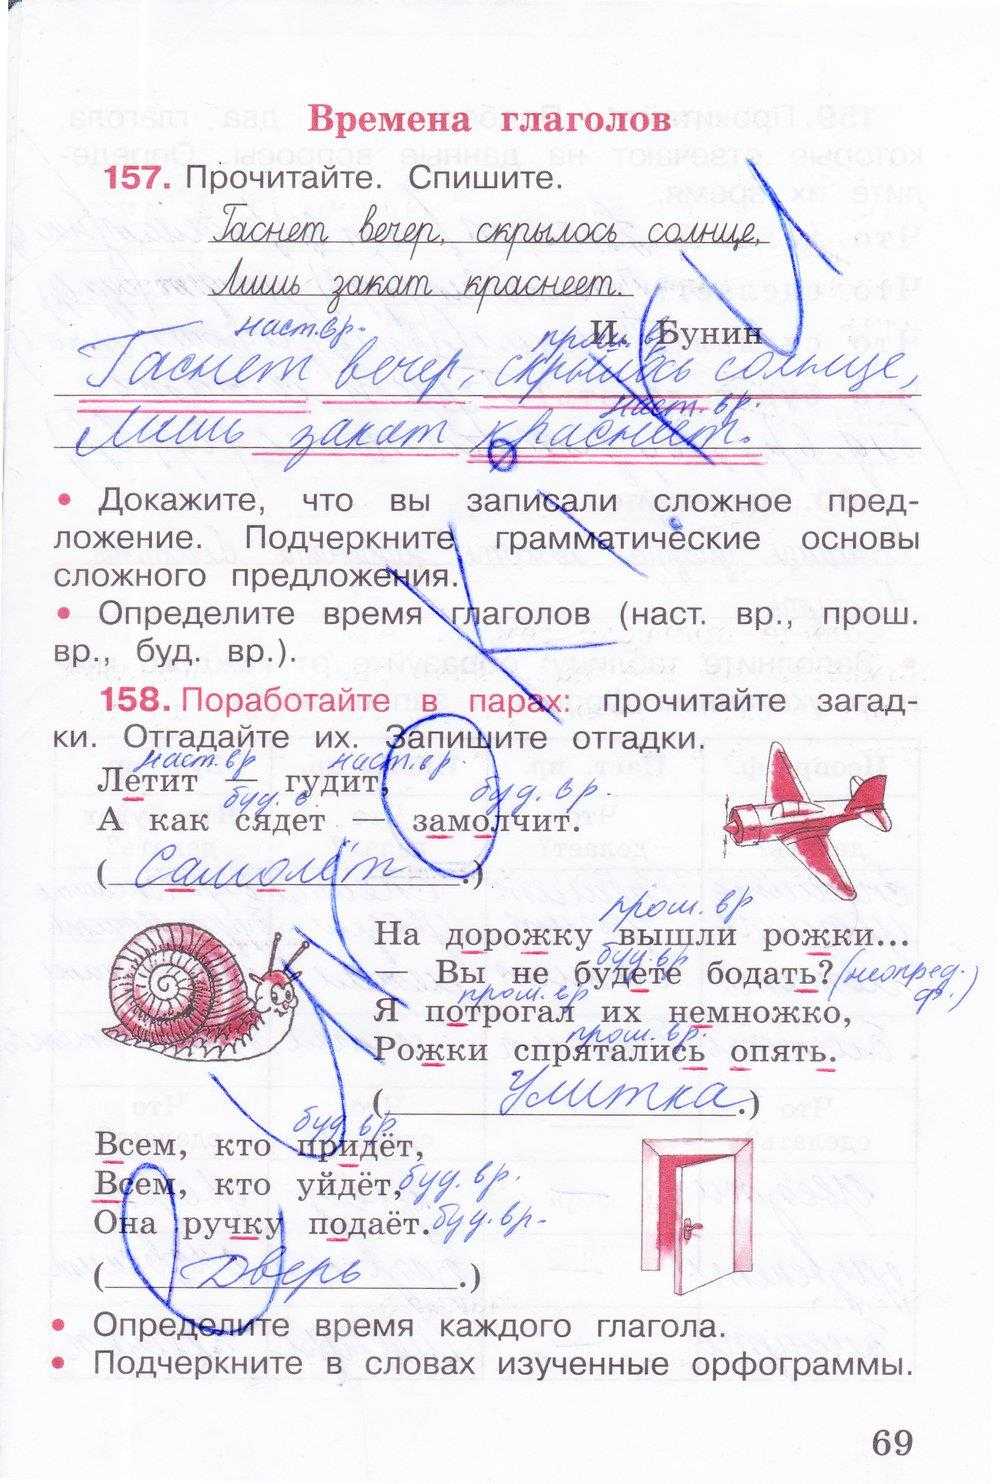 Времена глаголов
157. Прочитайте. Спишите.
Гаснет вечер, скрылось солнце,
Лишь закат краснеет.
И. Бунин
наст.вр. прош. вр.
Гаснет вечер, скрылось солнце,
наст. вр.
Лишь закат краснеет.
• Докажите, что вы записали сложное пред-
ложение. Подчеркните грамматические основы
сложного предложения.
• Определите время глаголов (наст. вр., прош.
вр., буд. вр.).
158. Поработайте в парах: прочитайте загад-
ки. Отгадайте их. Запишите отгадки.
наст.вр наст.вр.
Летит — гудит,
буд. в. буд. вр.
А как сядет — замолчит.
(Самолёт.)
прош. вр
На дорожку вышли рожки...
буд.вр
— Вы не будете бодать? (неопред. ф.)
прош. вр
Я потрогал их немножко,
прош. вр.
Рожки спрятались опять.
(Улитка.)
буд.вр.
Всем, кто придёт,
Всем, кто уйдёт, буд. вр.
Она ручку подаёт. буд. вр.
(Дверь.)
• Определите время каждого глагола.
• Подчеркните в словах изученные орфограммы.
69